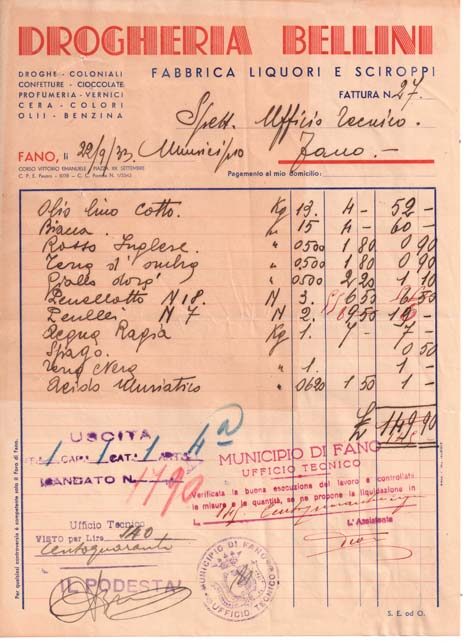 DROGHERIA BELLINI
DROGHE - COLONIALI
CONFETTURE - CIOCCOLATE
PROFUMERIA - VERNICI
CERA - COLORI
OLII - BENZINA
FABBRICA LIQUORI E SCIROPPI
FATTURA N. 27.
Spett. Ufficio Tecnico.
Municipio Fano. -
FANO, li 22/9/33
CORSO VITTORIO EMANUELE - PIAZZA XX SETTEMBRE
Pagamento al mio domicilio:
Olio lino cotto. Kg 13. 4 - 52 -
Biacca. " 15 4 - 60 -
Rosso Inglese. " 0,500 1 80 0 90
Terra d'ombra " 0,500 1 80 0 90
Giallo " 0,500 2 20 1 10
Pennellotto N 18. N 3.
Penelli N 7 N 2
Acqua Ragia Kg 1. 7 - 7 -
Spago. 0 50
Terra Nera " 1. 1 -
Acido Muriatico " 0620 1 50 1 -
USCITA
CAP. 1 CAT. 1 ART.
MANDATO N. 1790
MUNICIPIO DI FANO
UFFICIO TECNICO
Verificata la buona esecuzione del lavoro e controllate
le misure e le quantità, se ne propone la liquidazione in
L.
L'Assistente
Ufficio Tecnico
VISTO per Lire 140
Centoquaranta
IL PODESTA'
MUNICIPIO DI FANO
UFFICIO TECNICO
Per qualsiasi controversia è competente solo il Foro di Fano.
S. E. od O.